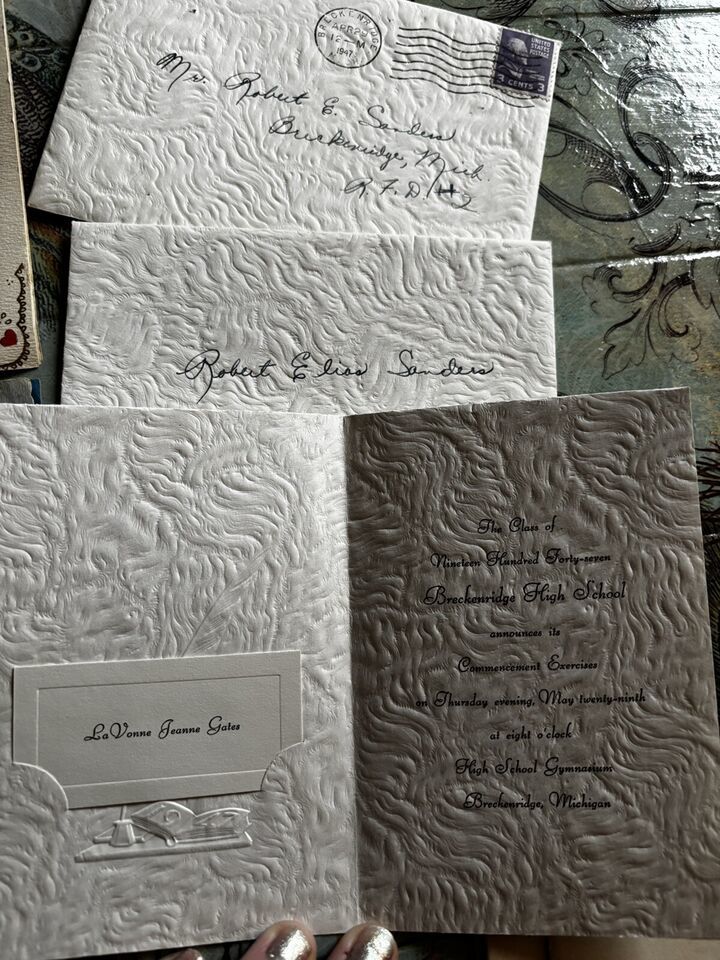 BRECKENRIDGE
APR 29
12 — M
1947
UNITED STATES POSTAGE
3 CENTS 3
Mr. Robert E. Sanders
Breckenridge, Mich.
R.F.D. #2
Robert Elias Sanders
The Class of
Nineteen Hundred Forty-seven
Breckenridge High School
announces its
Commencement Exercises
on Thursday evening, May twenty-ninth
at eight o'clock
High School Gymnasium
Breckenridge, Michigan
LaVonne Jeanne Gates